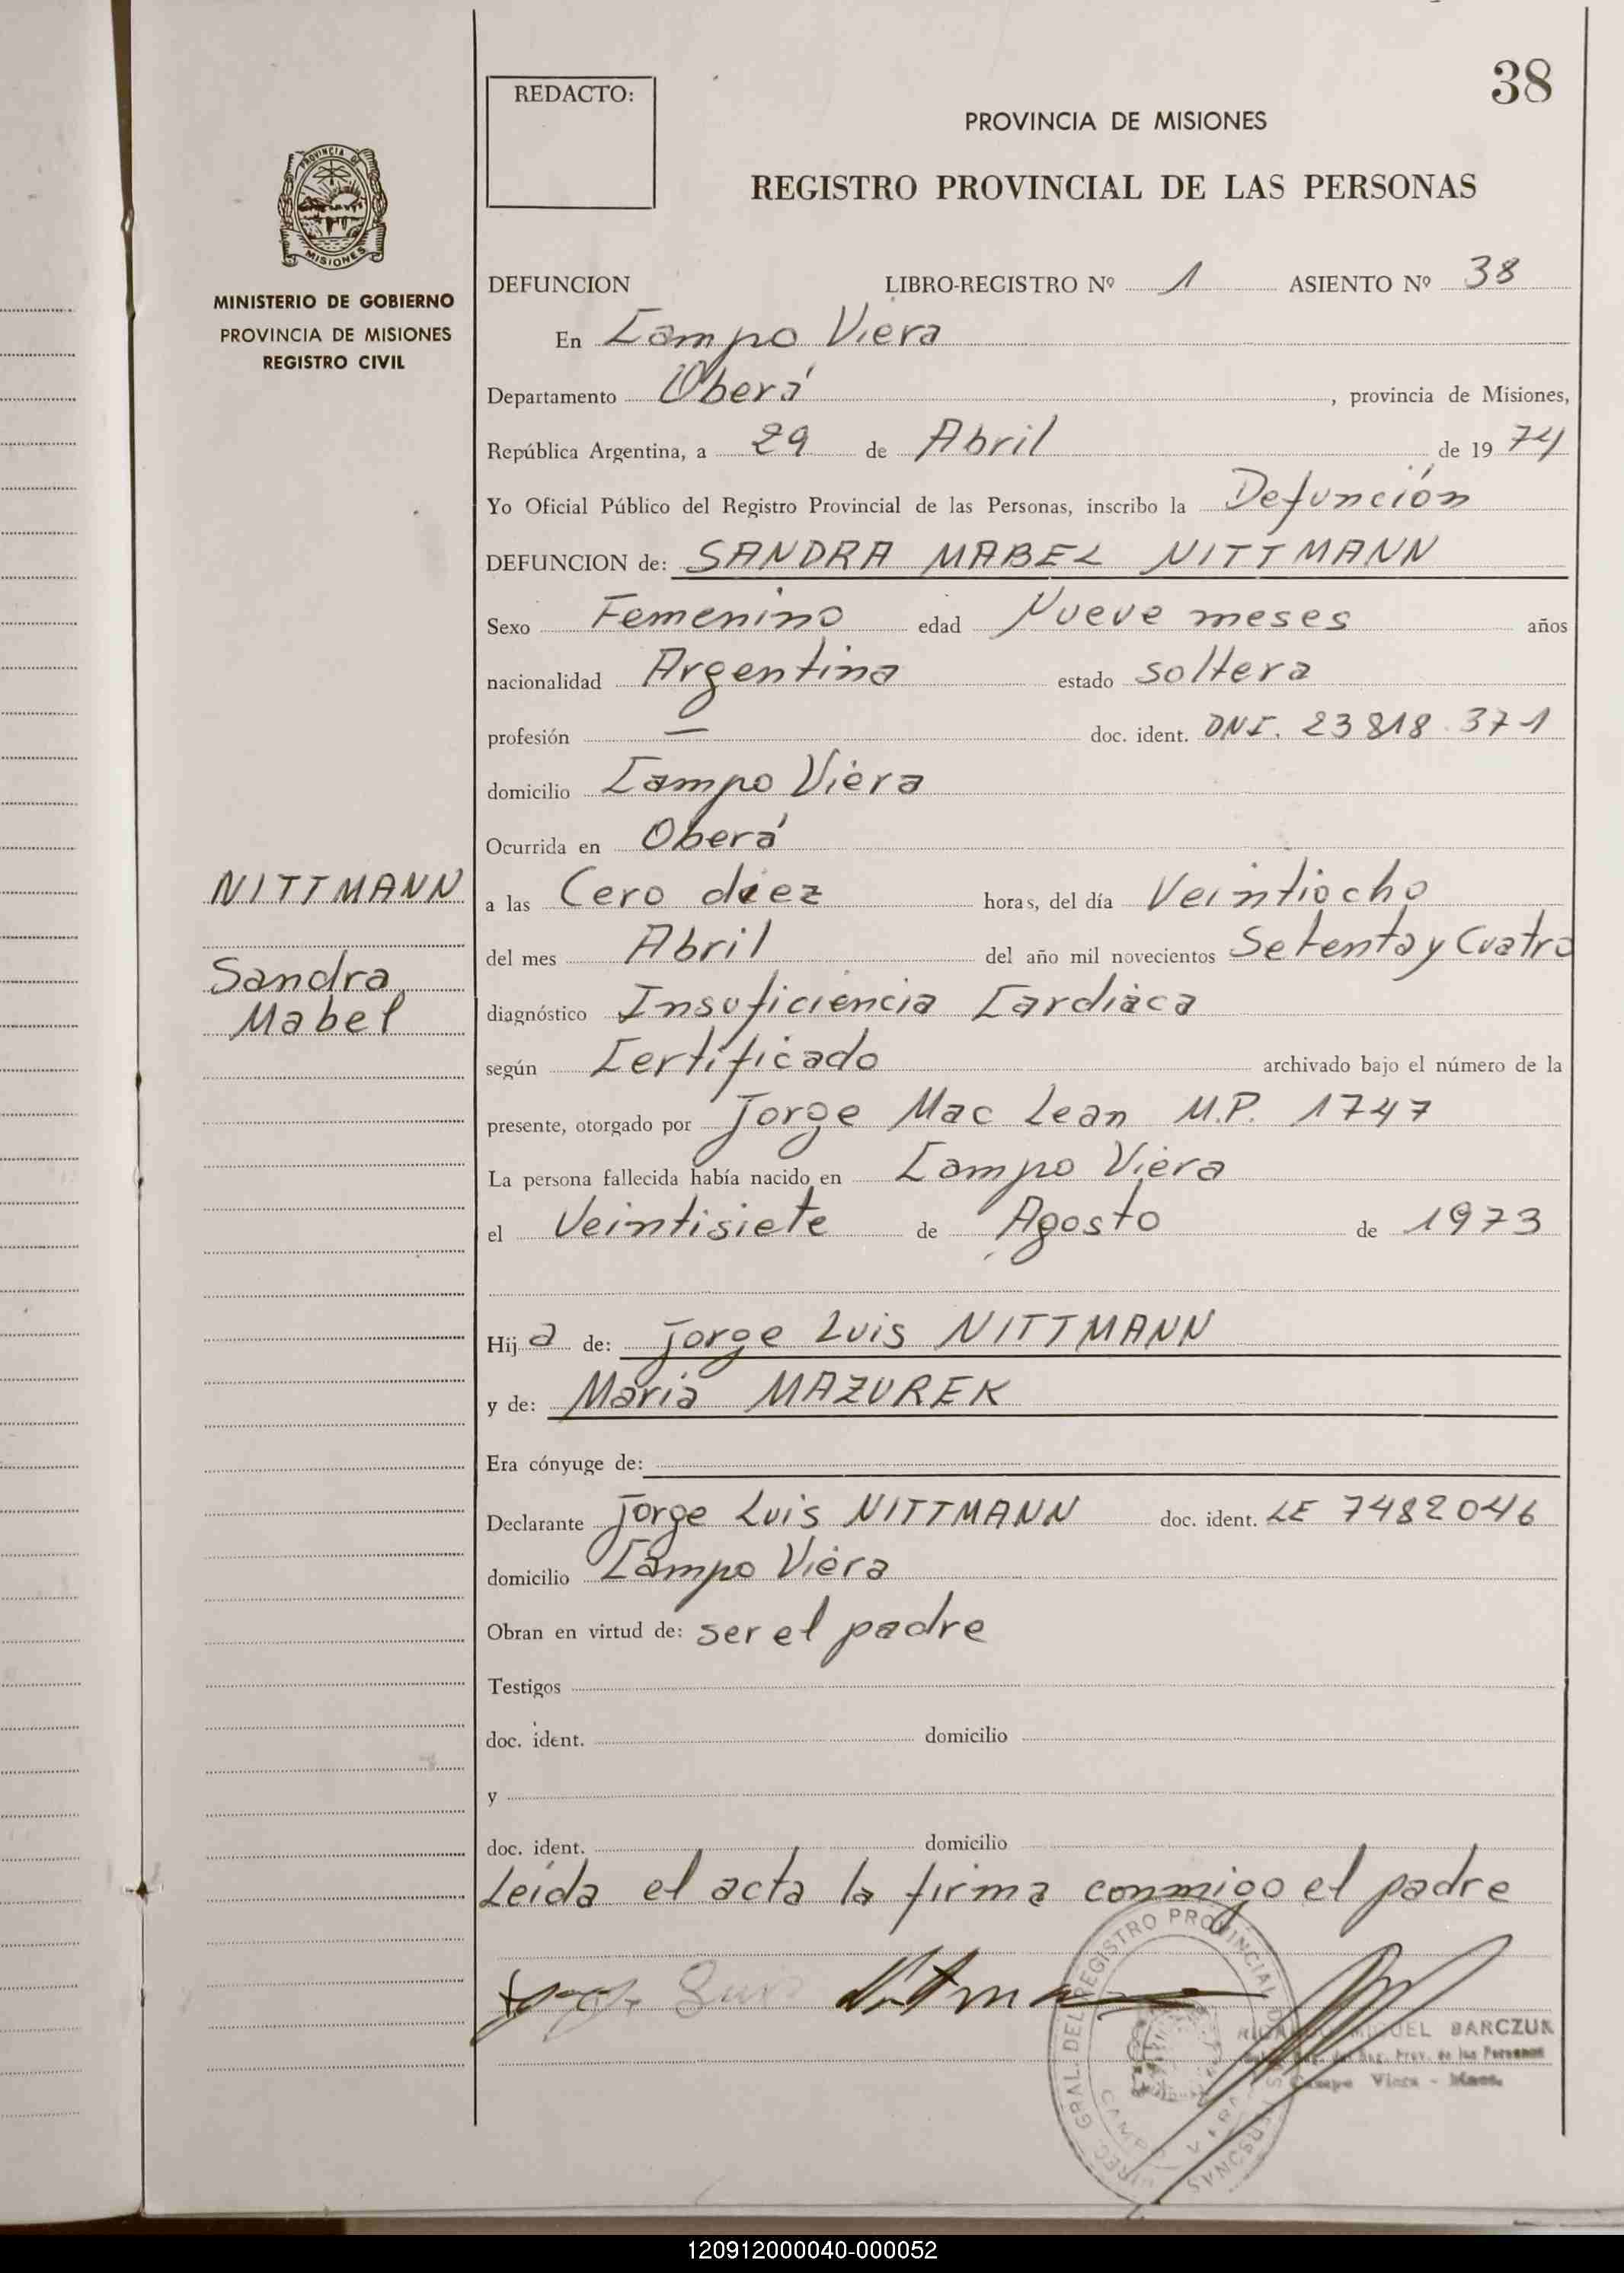 38
REDACTO:
PROVINCIA DE MISIONES
REGISTRO PROVINCIAL DE LAS PERSONAS
PROVINCIA DE
MISIONES
MINISTERIO DE GOBIERNO
PROVINCIA DE MISIONES
REGISTRO CIVIL
DEFUNCION LIBRO-REGISTRO Nº 1 ASIENTO Nº 38
En Campo Viera
Departamento Oberá, provincia de Misiones,
República Argentina, a 29 de Abril de 1974
Yo Oficial Público del Registro Provincial de las Personas, inscribo la Defunción
DEFUNCION de: SANDRA MABEL NITTMANN
Sexo Femenino edad Nueve meses años
nacionalidad Argentina estado soltera
profesión — doc. ident. DNI. 23818.371
domicilio Campo Viera
Ocurrida en Oberá
NITTMANN
Sandra
Mabel
a las Cero diez horas, del día Veintiocho
del mes Abril del año mil novecientos Setenta y Cuatro
diagnóstico Insuficiencia Cardiaca
según Certificado archivado bajo el número de la
presente, otorgado por Jorge Mac Lean M.P. 1747
La persona fallecida había nacido en Campo Viera
el Veintisiete de Agosto de 1973
Hija de: Jorge Luis NITTMANN
y de: Maria MAZUREK
Era cónyuge de:
Declarante Jorge Luis NITTMANN doc. ident. LE 7482046
domicilio Campo Viera
Obran en virtud de: ser el padre
Testigos
doc. ident. domicilio
y
doc. ident. domicilio
Leída el acta la firma conmigo el padre
Jorge Luis Nittmann
GRAL. DEL REGISTRO PROVINCIAL DE LAS PERSONAS
CAMPO VIERA
MIGUEL BARCZUK
Reg. Prov. de las Personas
Campo Viera - Mnes.
120912000040-000052